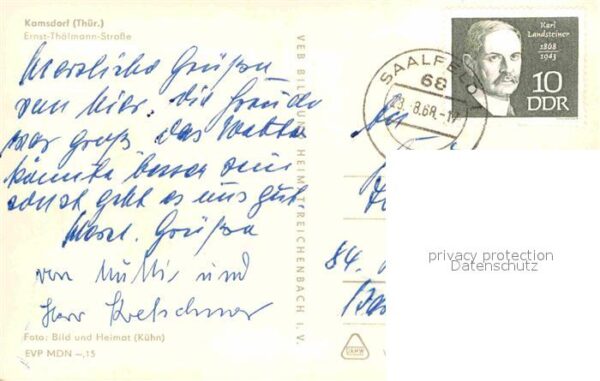 Kamsdorf (Thür.)
Ernst-Thälmann-Straße
Herzliche Grüße
von hier, die Freude
war groß das Wetter
könnte besser sein
sonst geht es uns gut.
Herzl. Grüße
von Mutti und
Herr Kretschmer
Foto: Bild und Heimat (Kühn)
EVP MDN –,15
VEB BILD UND HEIMAT REICHENBACH I. V.
SAALFELD
68
23.-8.68.-17
Karl
Landsteiner
1868
1943
10
DDR
An
84.
privacy protection
Datenschutz